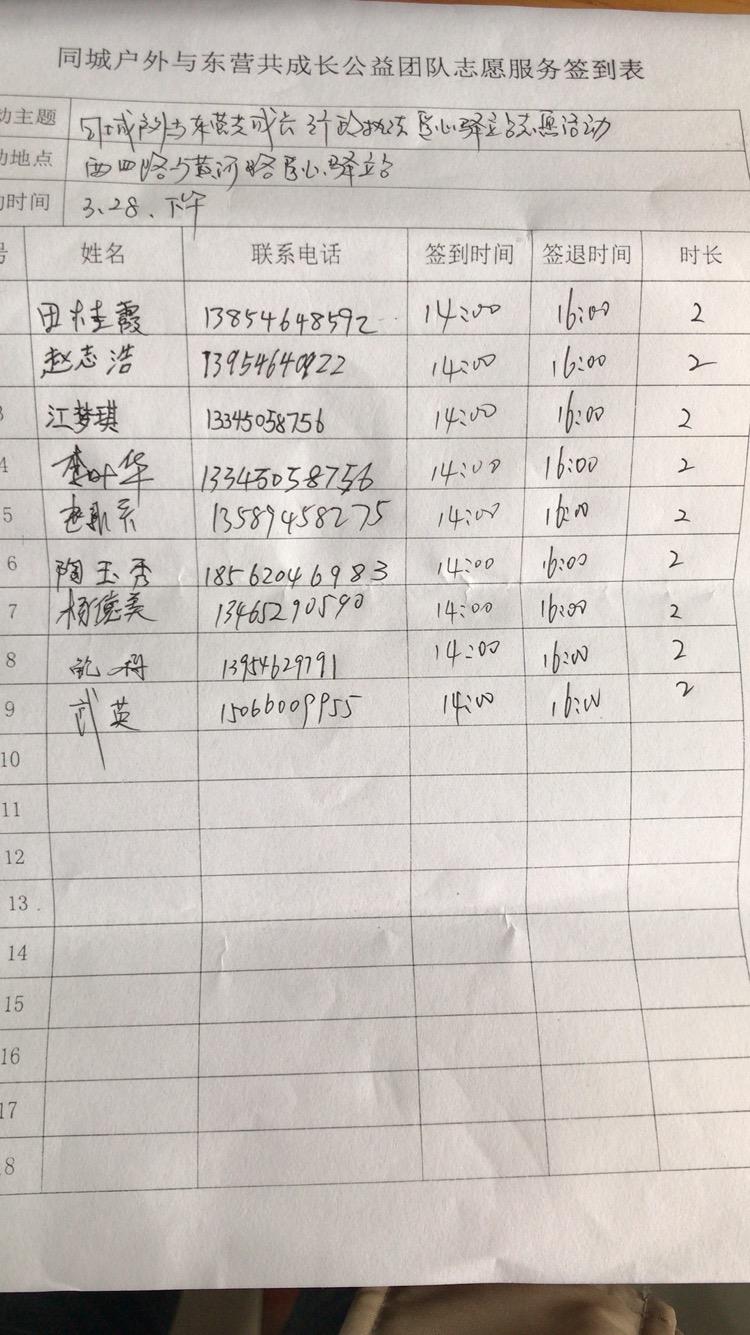 同城户外与东营共成长公益团队志愿服务签到表
动主题 同城户外与东营共成长 行政执法 爱心驿站志愿活动
动地点 西四路与黄河路爱心驿站
时间 3.28、下午
号 姓名 联系电话 签到时间 签退时间 时长
田桂霞 13854648592 14:00 16:00 2
赵志浩 14:00 16:00 2
3 江梦琪 13345058756 14:00 16:00 2
4 李叶华 13345058756 14:00 16:00 2
5 13589458275 14:00 16:00 2
6 陶玉秀 18562046983 14:00 16:00 2
7 杨德美 13465290590 14:00 16:00 2
8 13954629791 14:00 16:00 2
9 武英 15066009955 14:00 16:00 2
10
11
12
13
14
15
16
17
8